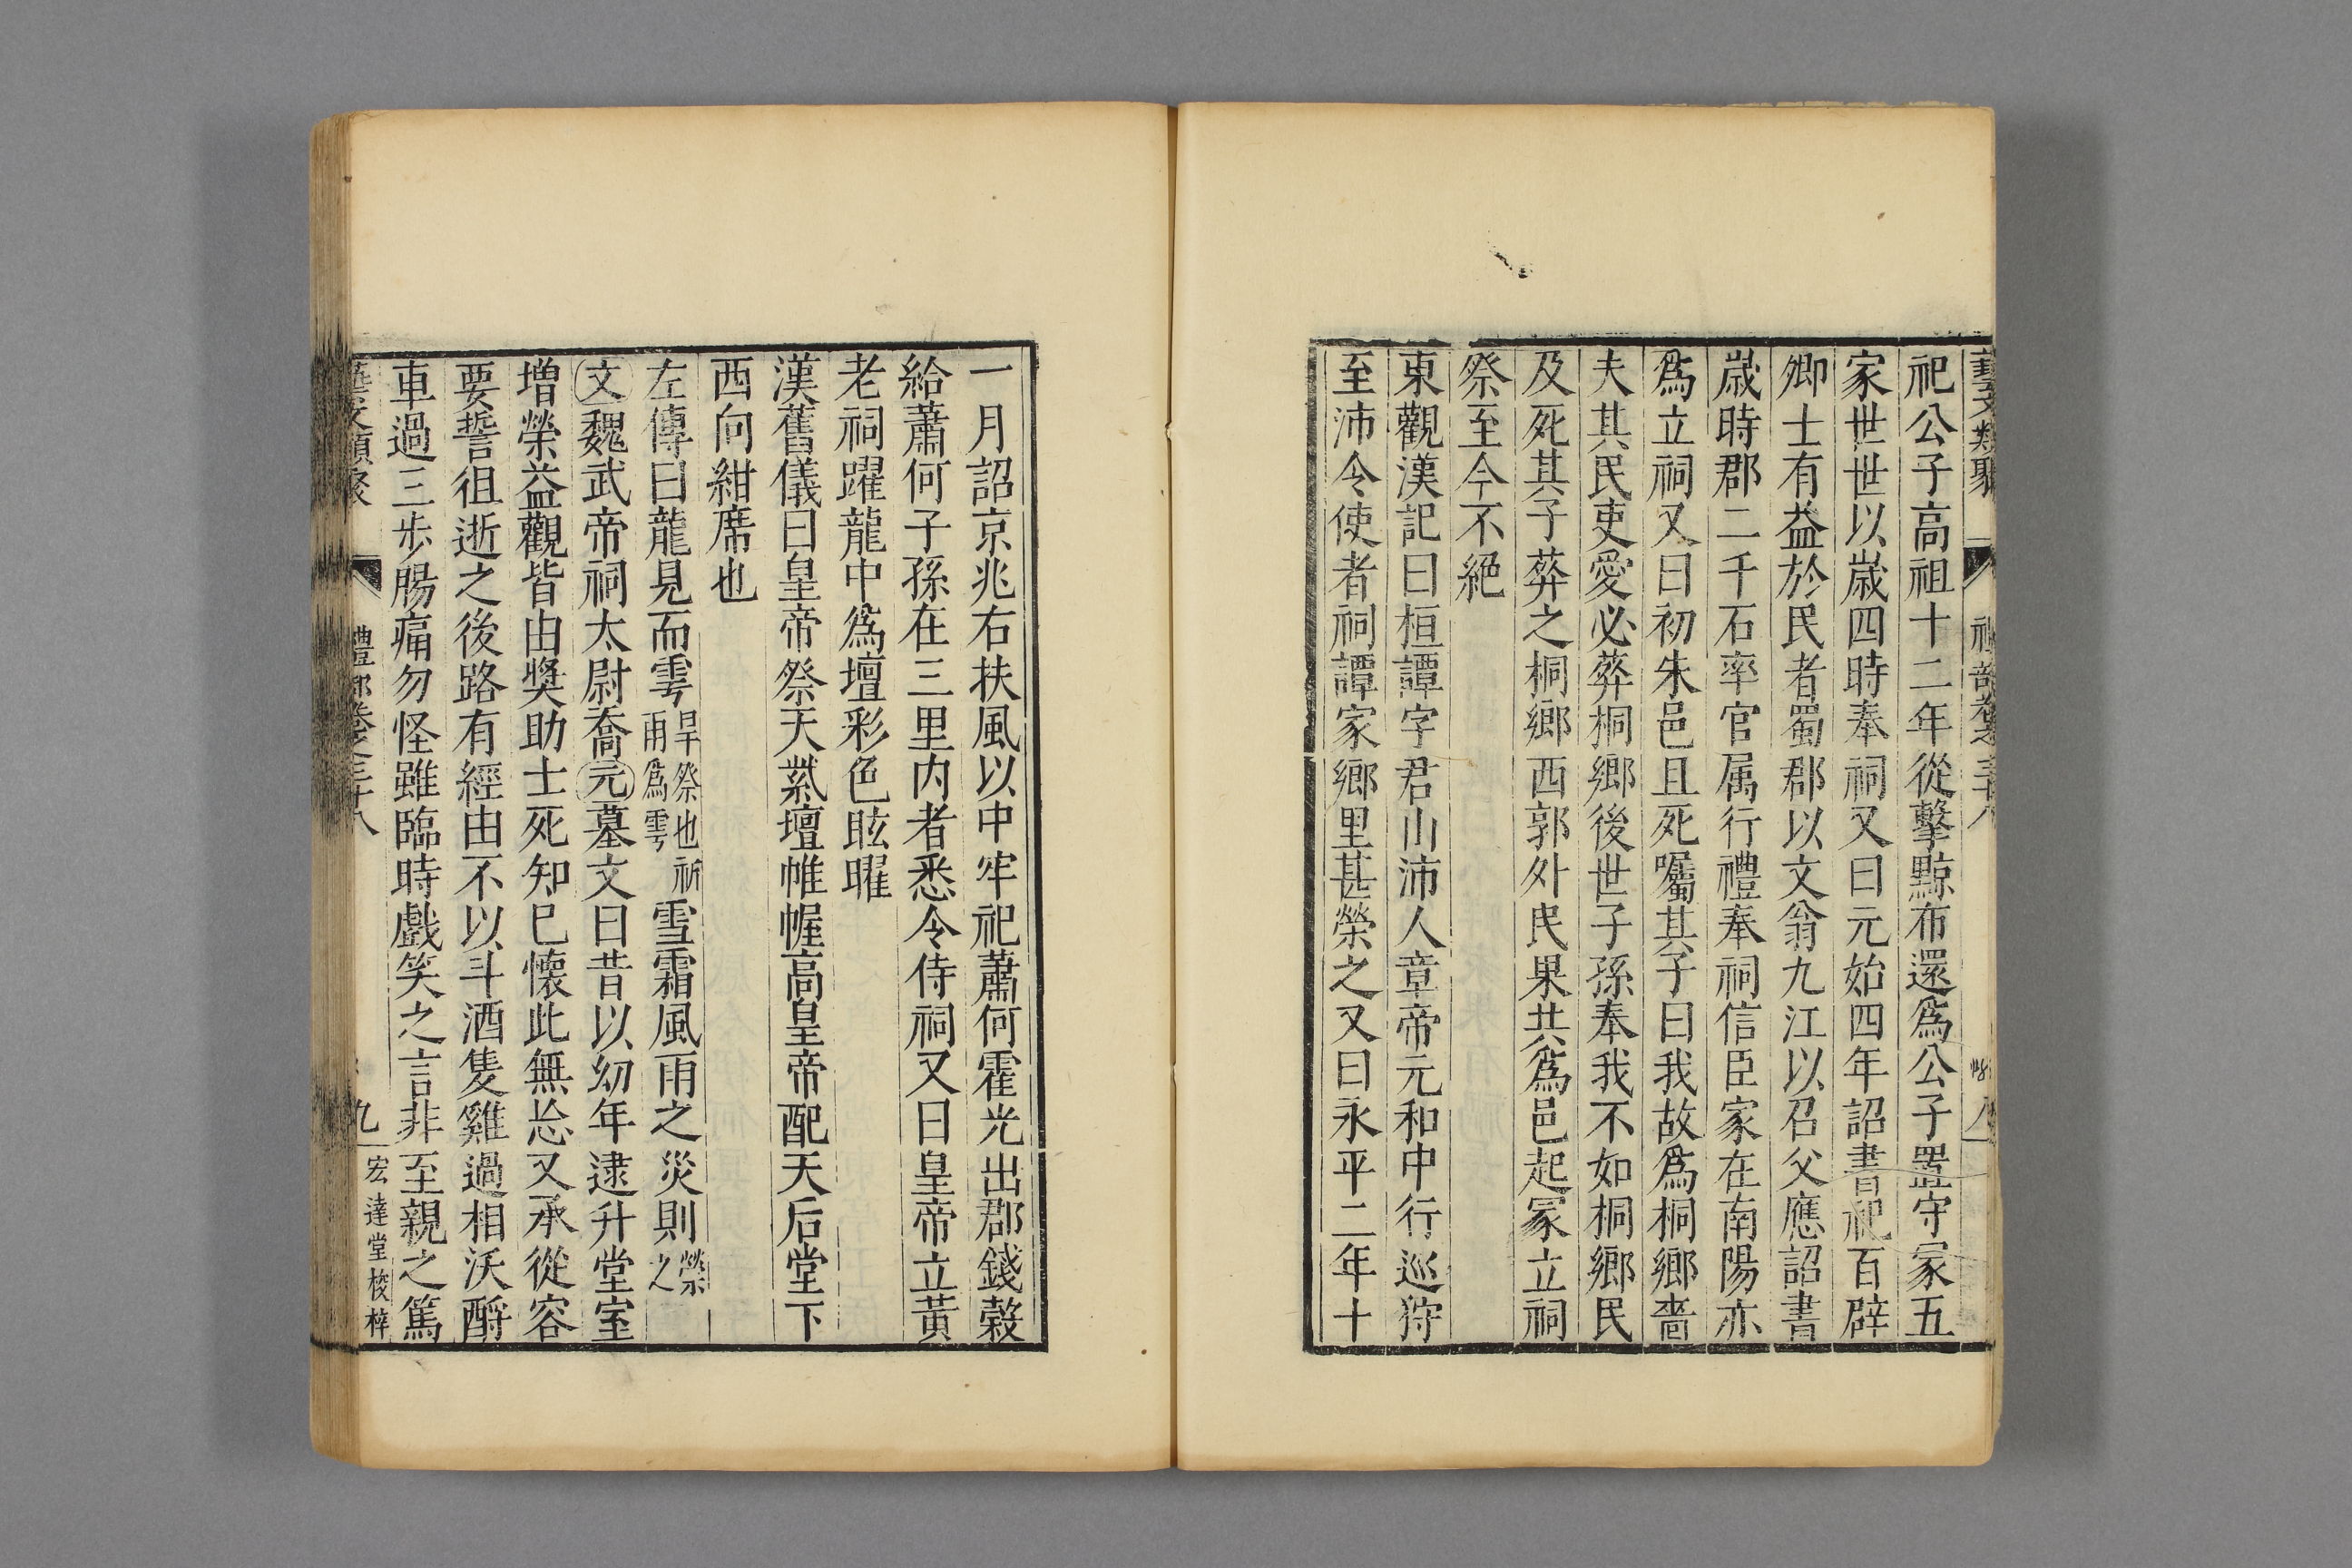 藝文類聚 禮部卷之三十八 八
祀公子高祖十二年從擊黥布還爲公子置守冢五
家世世以歲四時奉祠又曰元始四年詔書祀百辟
卿士有益於民者蜀郡以文翁九江以召父應詔書
歲時郡二千石率官属行禮奉祠信臣家在南陽亦
爲立祠又曰初朱邑且死囑其子曰我故爲桐鄉嗇
夫其民吏愛必葬桐鄉後世子孫奉我不如桐鄉民
及死其子葬之桐鄉西郭外民果共爲邑起冢立祠
祭至今不絕
東觀漢記曰桓譚字君山沛人章帝元和中行巡狩
至沛令使者祠譚家鄉里甚榮之又曰永平二年十
一月詔京兆右扶風以中牢祀蕭何霍光出郡錢穀
給蕭何子孫在三里内者悉令侍祠又曰皇帝立黃
老祠躍龍中爲壇彩色眩曜
漢舊儀曰皇帝祭天紫壇帷幄高皇帝配天后堂下
西向紺席也
左傳曰龍見而雩旱祭也祈雨爲雩雪霜風雨之災則禜之
文魏武帝祠太尉喬元墓文曰昔以幼年逮升堂室
増榮益觀皆由奬助士死知巳懷此無忘又承從容
要誓徂逝之後路有經由不以斗酒隻雞過相沃酹
車過三步腸痛勿怪雖臨時戲笑之言非至親之篤
藝文類聚 禮部卷之三十八 九 宏達堂梭梓